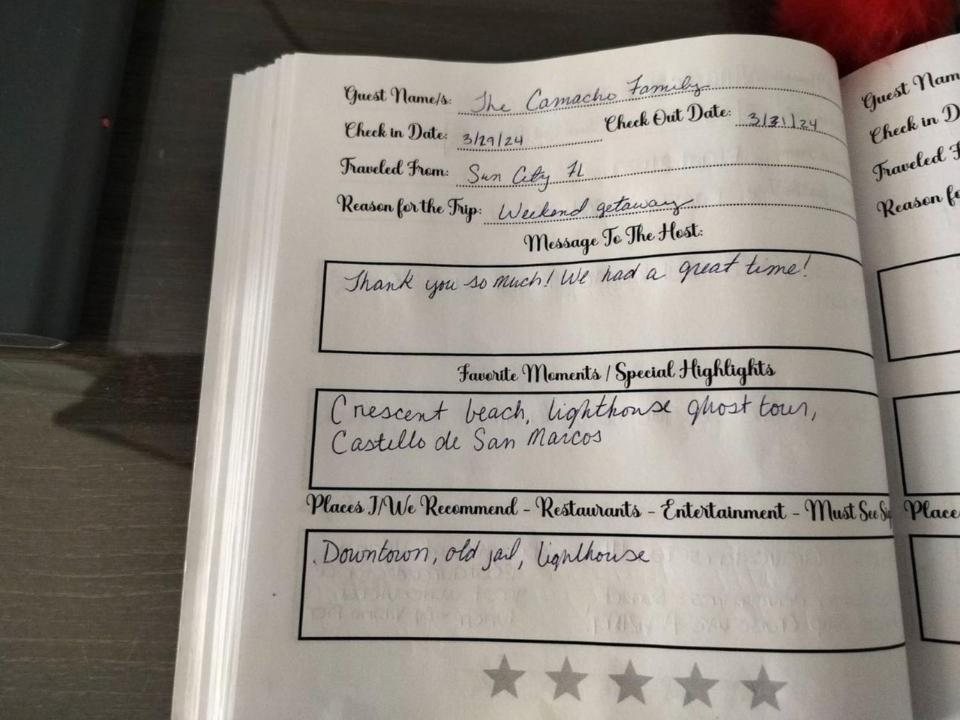 Guest Name/s: The Camacho Family
Check in Date: 3/29/24 Check Out Date: 3/31/24
Traveled From: Sun City FL
Reason for the Trip: Weekend getaway
Message To The Host:
Thank you so much! We had a great time!
Favorite Moments / Special Highlights
Crescent beach, lighthouse ghost tour,
Castello de San Marcos
Places I/We Recommend - Restaurants - Entertainment - Must See
Downtown, old jail, lighthouse
Guest Nam
Check in D
Traveled F
Reason fo
Place